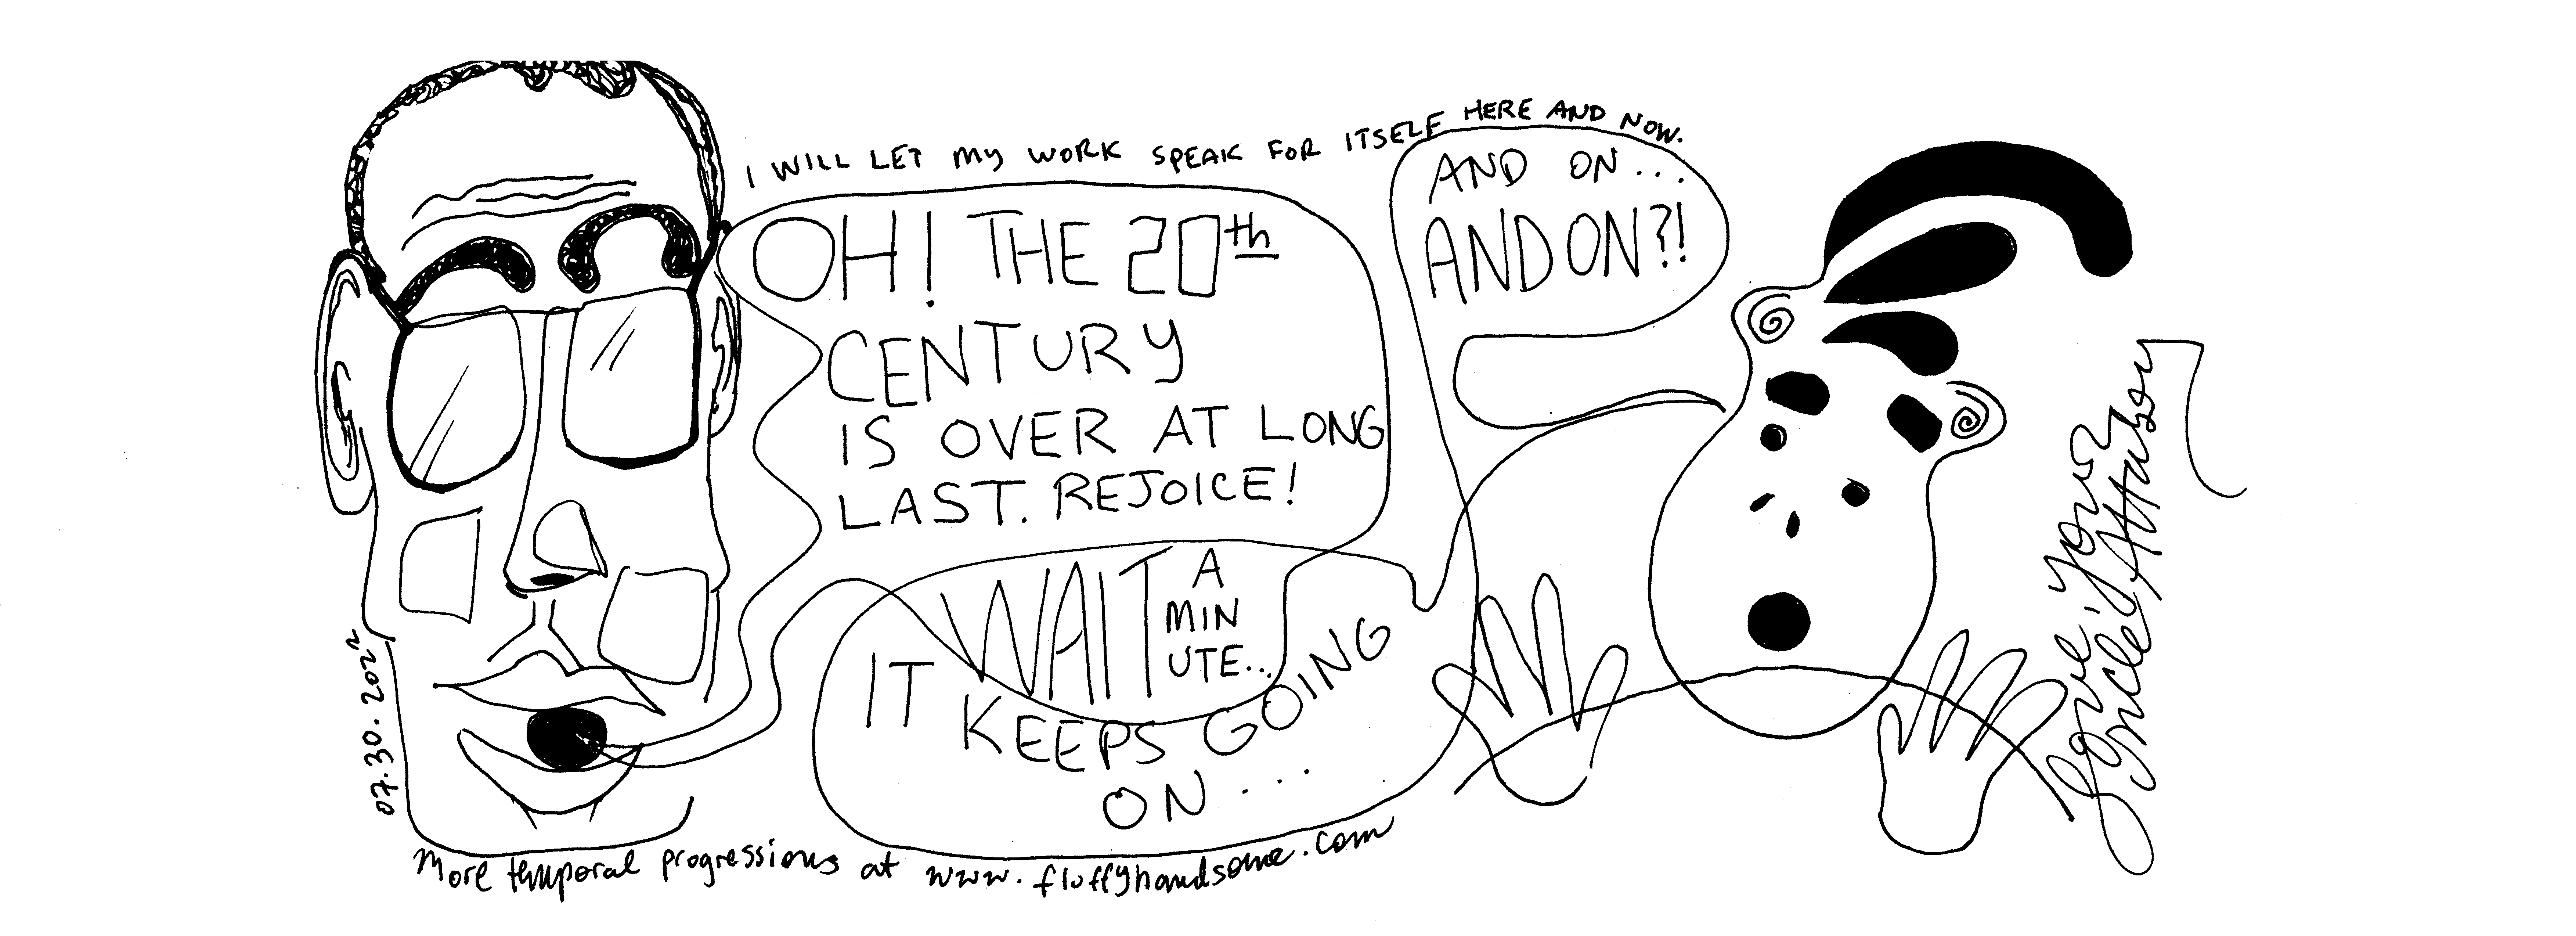 I WILL LET MY WORK SPEAK FOR ITSELF HERE AND NOW.
OH! THE 20th
CENTURY
IS OVER AT LONG
LAST. REJOICE!
WAIT A
MIN
UTE..
IT KEEPS GOING
ON...
AND ON...
AND ON?!
07.30.2022
More temporal progressions at www.fluffyhandsome.com
Love, Your
Uncle